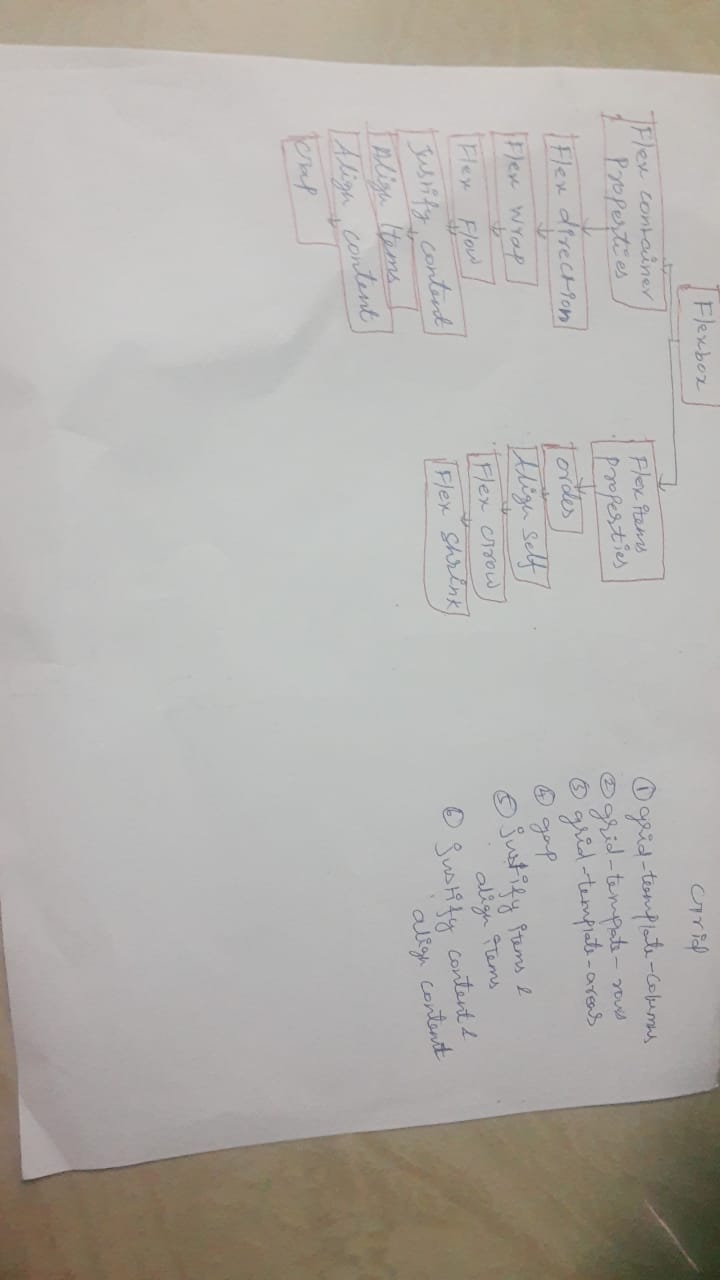 Flexbox
Flex container
properties
Flex direction
Flex wrap
Flex Flow
Justify content
Align Items
Align content
Gap
Flex items
properties
order
Align self
Flex Grow
Flex shrink
Grid
① grid-template-columns
② grid-template-rows
③ grid-template-areas
④ gap
⑤ justify items &
align items
⑥ justify content &
align content